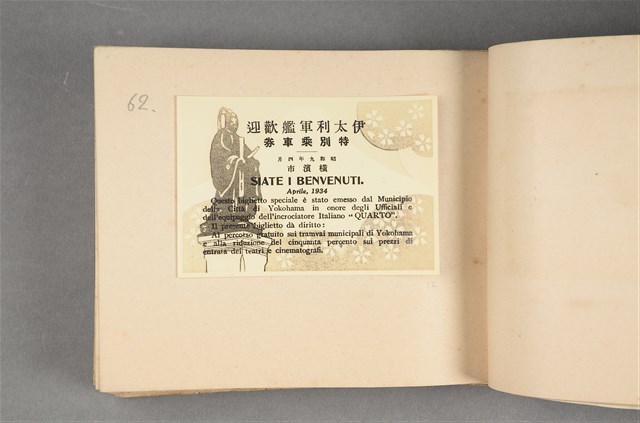 62.
迎歡艦軍利太伊
券車乘別特
月四年九和昭
市濱橫
SIATE I BENVENUTI.
Aprile, 1934
Questo biglietto speciale è stato emesso dal Municipio
della Città di Yokohama in onore degli Ufficiali e
dell'equipaggio dell'incrociatore Italiano "QUARTO".
Il presente biglietto dà diritto:
Al percorso gratuito sui tramvai municipali di Yokohama
e alla riduzione del cinquanta percento sui prezzi di
entrata dei teatri e cinematografi.
12